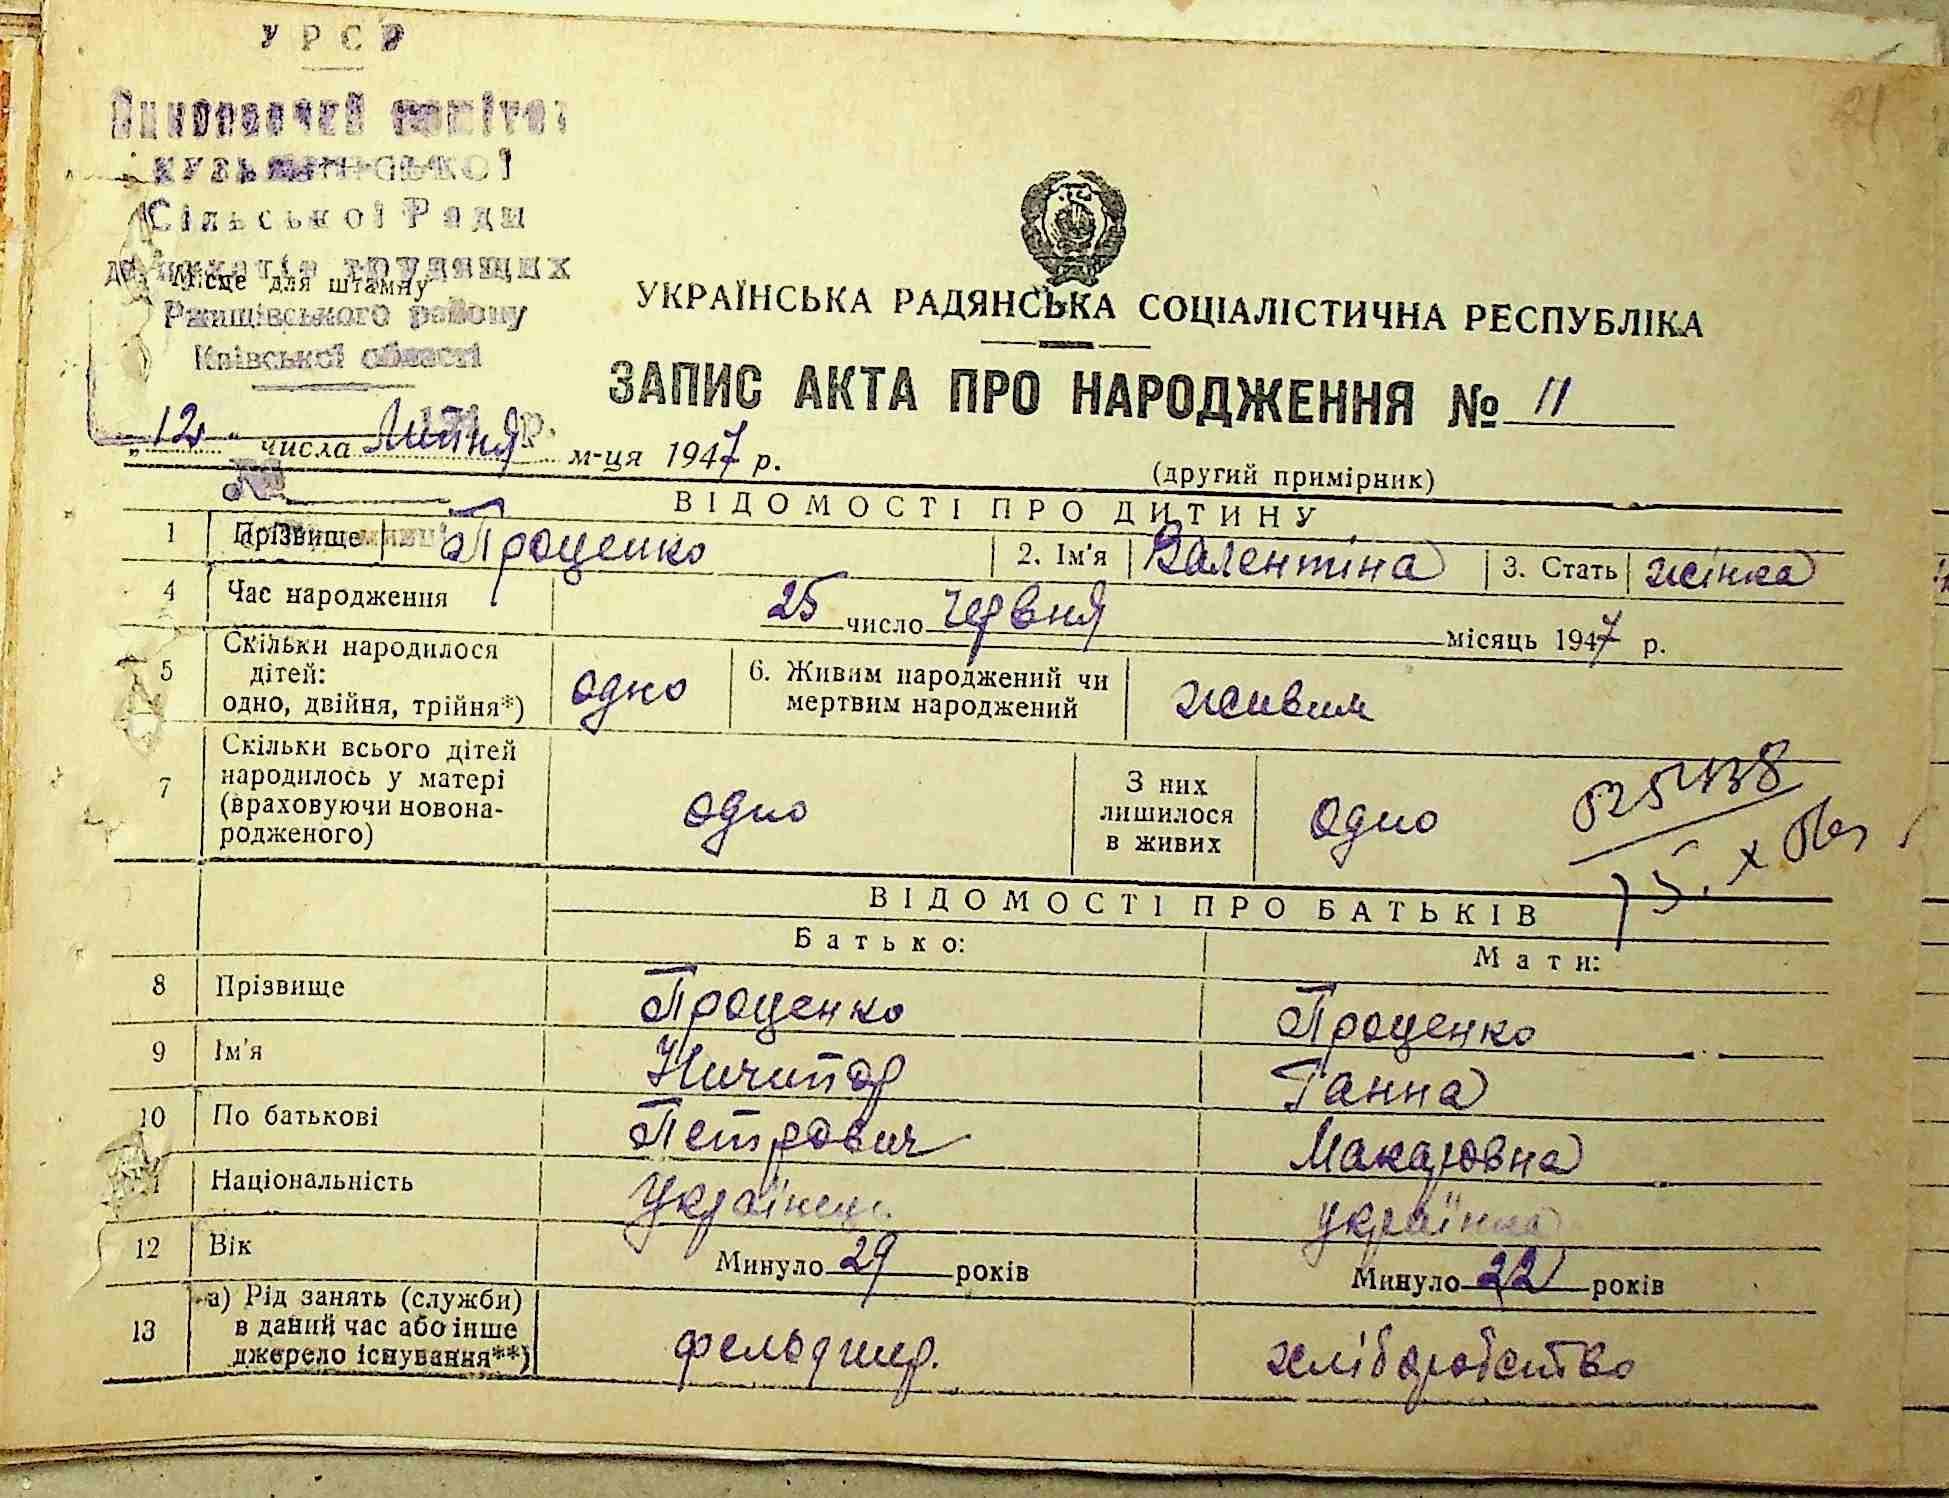 УРСР
Виконавчий комітет
Сільської Ради
депутатів трудящих
Місце для штампу
Ржищівського району
Київської області
УКРАЇНСЬКА РАДЯНСЬКА СОЦІАЛІСТИЧНА РЕСПУБЛІКА
ЗАПИС АКТА ПРО НАРОДЖЕННЯ № 11
„12" числа Липня м-ця 1947 р.
(другий примірник)
№
ВІДОМОСТІ ПРО ДИТИНУ
1 Прізвище Проценко 2. Ім'я Валентіна 3. Стать жінка
4 Час народження 25 число червня місяць 1947 р.
5 Скільки народилося дітей: одно, двійня, трійня*) одно 6. Живим народжений чи мертвим народжений живим
7 Скільки всього дітей народилось у матері (враховуючи новонародженого) одно З них лишилося в живих одно
ВІДОМОСТІ ПРО БАТЬКІВ
Батько: Мати:
8 Прізвище Проценко Проценко
9 Ім'я Ничипор Ганна
10 По батькові Петрович Макаровна
Національність Українець українка
12 Вік Минуло 29 років Минуло 22 років
13 а) Рід занять (служби) в даний час або інше джерело існування**) фельдшер. хліборобство